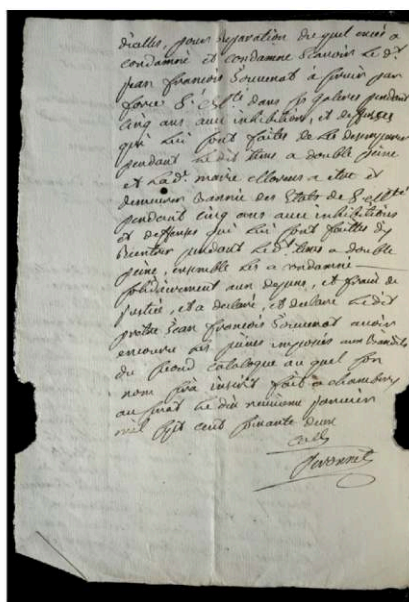 dialles, pour reparation du quel excès a
condamné et condamne Scavoir Le d.t
Jean francois Souvenat a servir par
force S.e M.té dans ses galeres pendant
cinq ans avec inhibitions, et deffenses
qui Lui sont faites de Les desemparer
pendant Le dit tems a double peine
et La d.e marie a etre et
demeurer Bannie des Etats de S.e M.té
pendant cinq ans avec inhibitions
et deffenses qui Lui sont faittes d'y
Rentrer pendant Le d.t tems a double
peine, ensemble Les a condamné
solidairement aux depens, et frais de
justice, et a declaré, et declare Le dit
Jean francois Souvenat avoir
encouru les peines imposées aux Bandits
du second catalogue au quel son
nom sera inscrit fait a chambery
au senat Le dix neuvieme janvier
mil sept cent soixante deux